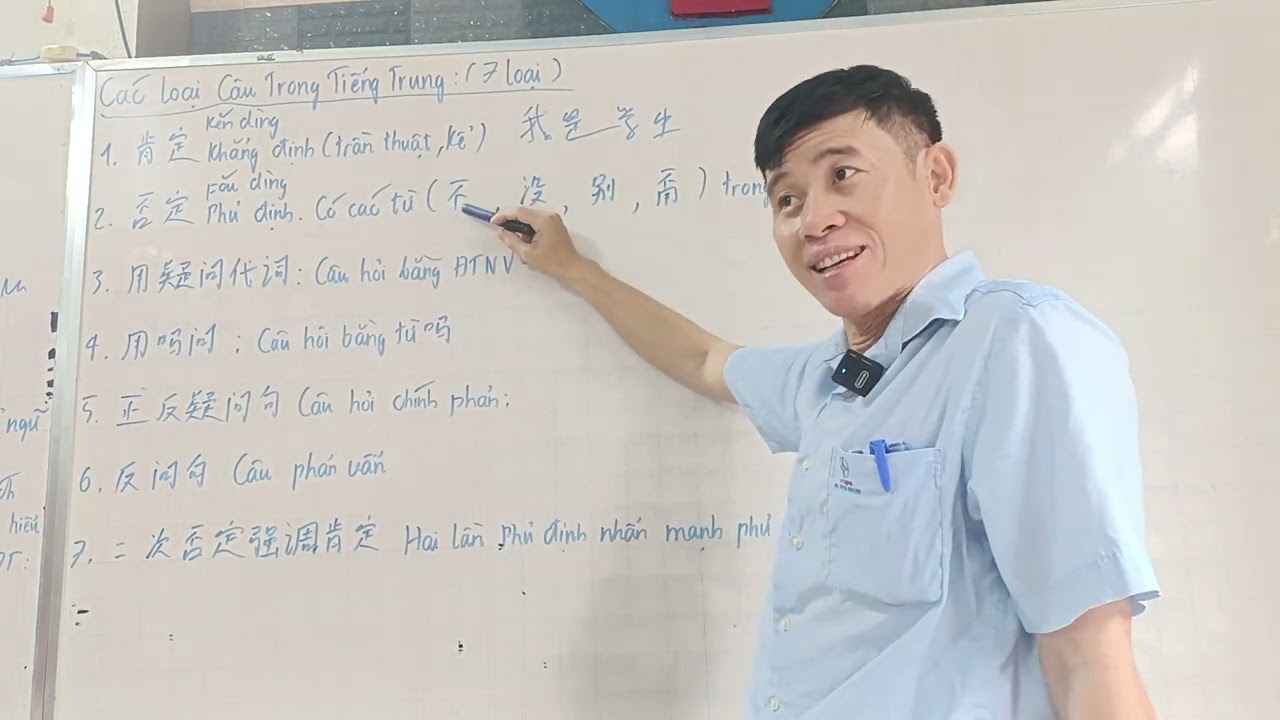 Các Loại Câu Trong Tiếng Trung: (7 loại)
kěn dìng
1. 肯定 Khẳng định (trần thuật, kể) 我是学生
Fǒu dìng
2. 否定 Phủ định. Có các từ (不, 没, 别, 甭) trong
3. 用疑问代词: Câu hỏi bằng ĐTNV
4. 用吗问: Câu hỏi bằng từ 吗
5. 正反疑问句 Câu hỏi chính phản:
6. 反问句 Câu phản vấn
7. 二次否定强调肯定 Hai lần phủ định nhấn mạnh phủ
ngữ
hiểu